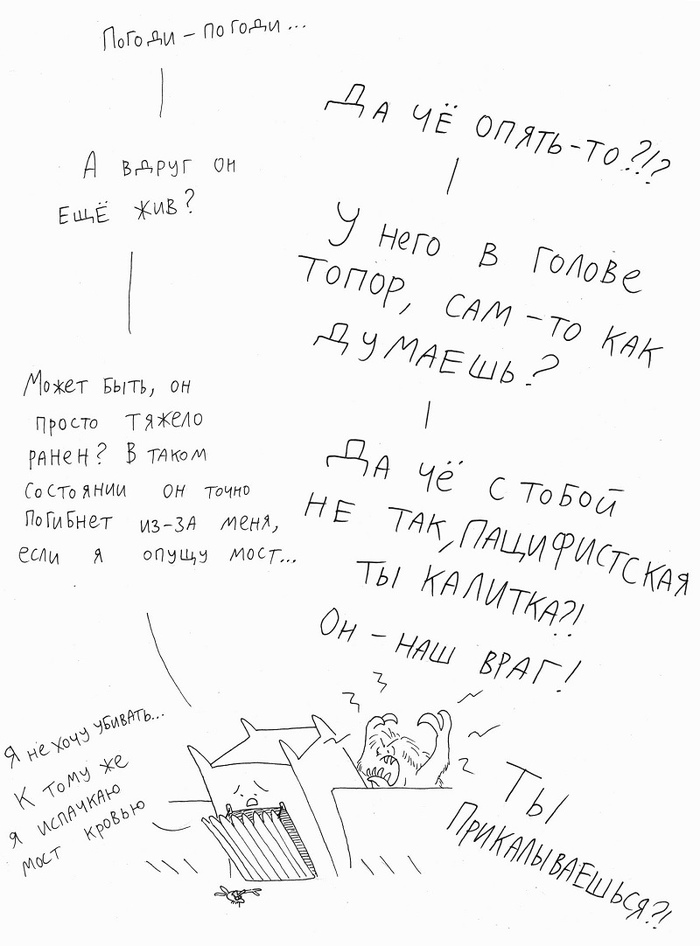 Погоди - погоди...
Да чё опять-то?!?
А вдруг он
ещё жив?
У него в голове
топор, сам-то как
думаешь?
Может быть, он
просто тяжело
ранен? В таком
состоянии он точно
погибнет из-за меня,
если я опущу мост...
Да чё с тобой
не так, пацифистская
ты калитка?!
Он - наш враг!
Я не хочу убивать...
К тому же
я испачкаю
мост кровью
Ты
прикалываешься?!